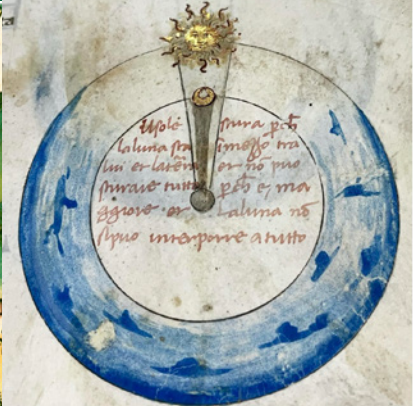 Il sole scura p̄ch̄
la luna sta imeȝȝo tra
lui et la terā et nō puo
scurare tutto p̄ch̄ e, ma
ggiore et la luna nō
si puo interporre a tutto